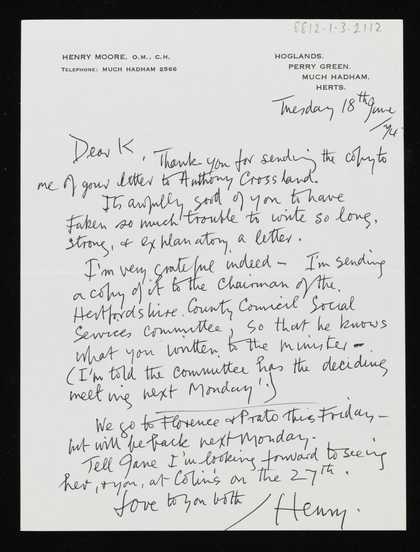 8812-1-3-2112
HENRY MOORE, O.M., C.H.
TELEPHONE: MUCH HADHAM 2566
HOGLANDS,
PERRY GREEN,
MUCH HADHAM,
HERTS.
Tuesday 18th June
/74
Dear K,
Thank you for sending the copy to
me of your letter to Anthony Crossland.
Its awfully good of you to have
taken so much trouble to write so long,
strong, & explanatory a letter.
I'm very grateful indeed – I'm sending
a copy of it to the Chairman of the
Hertfordshire County Council Social
Services Committee, so that he knows
what you written to the minister –
(I'm told the committee has the deciding
meeting next Monday!)
We go to Florence & Prato this Friday –
but will be back next Monday.
Tell Jane I'm looking forward to seeing
her, & you, at Colin's on the 27th.
Love to you both
/ Henry.